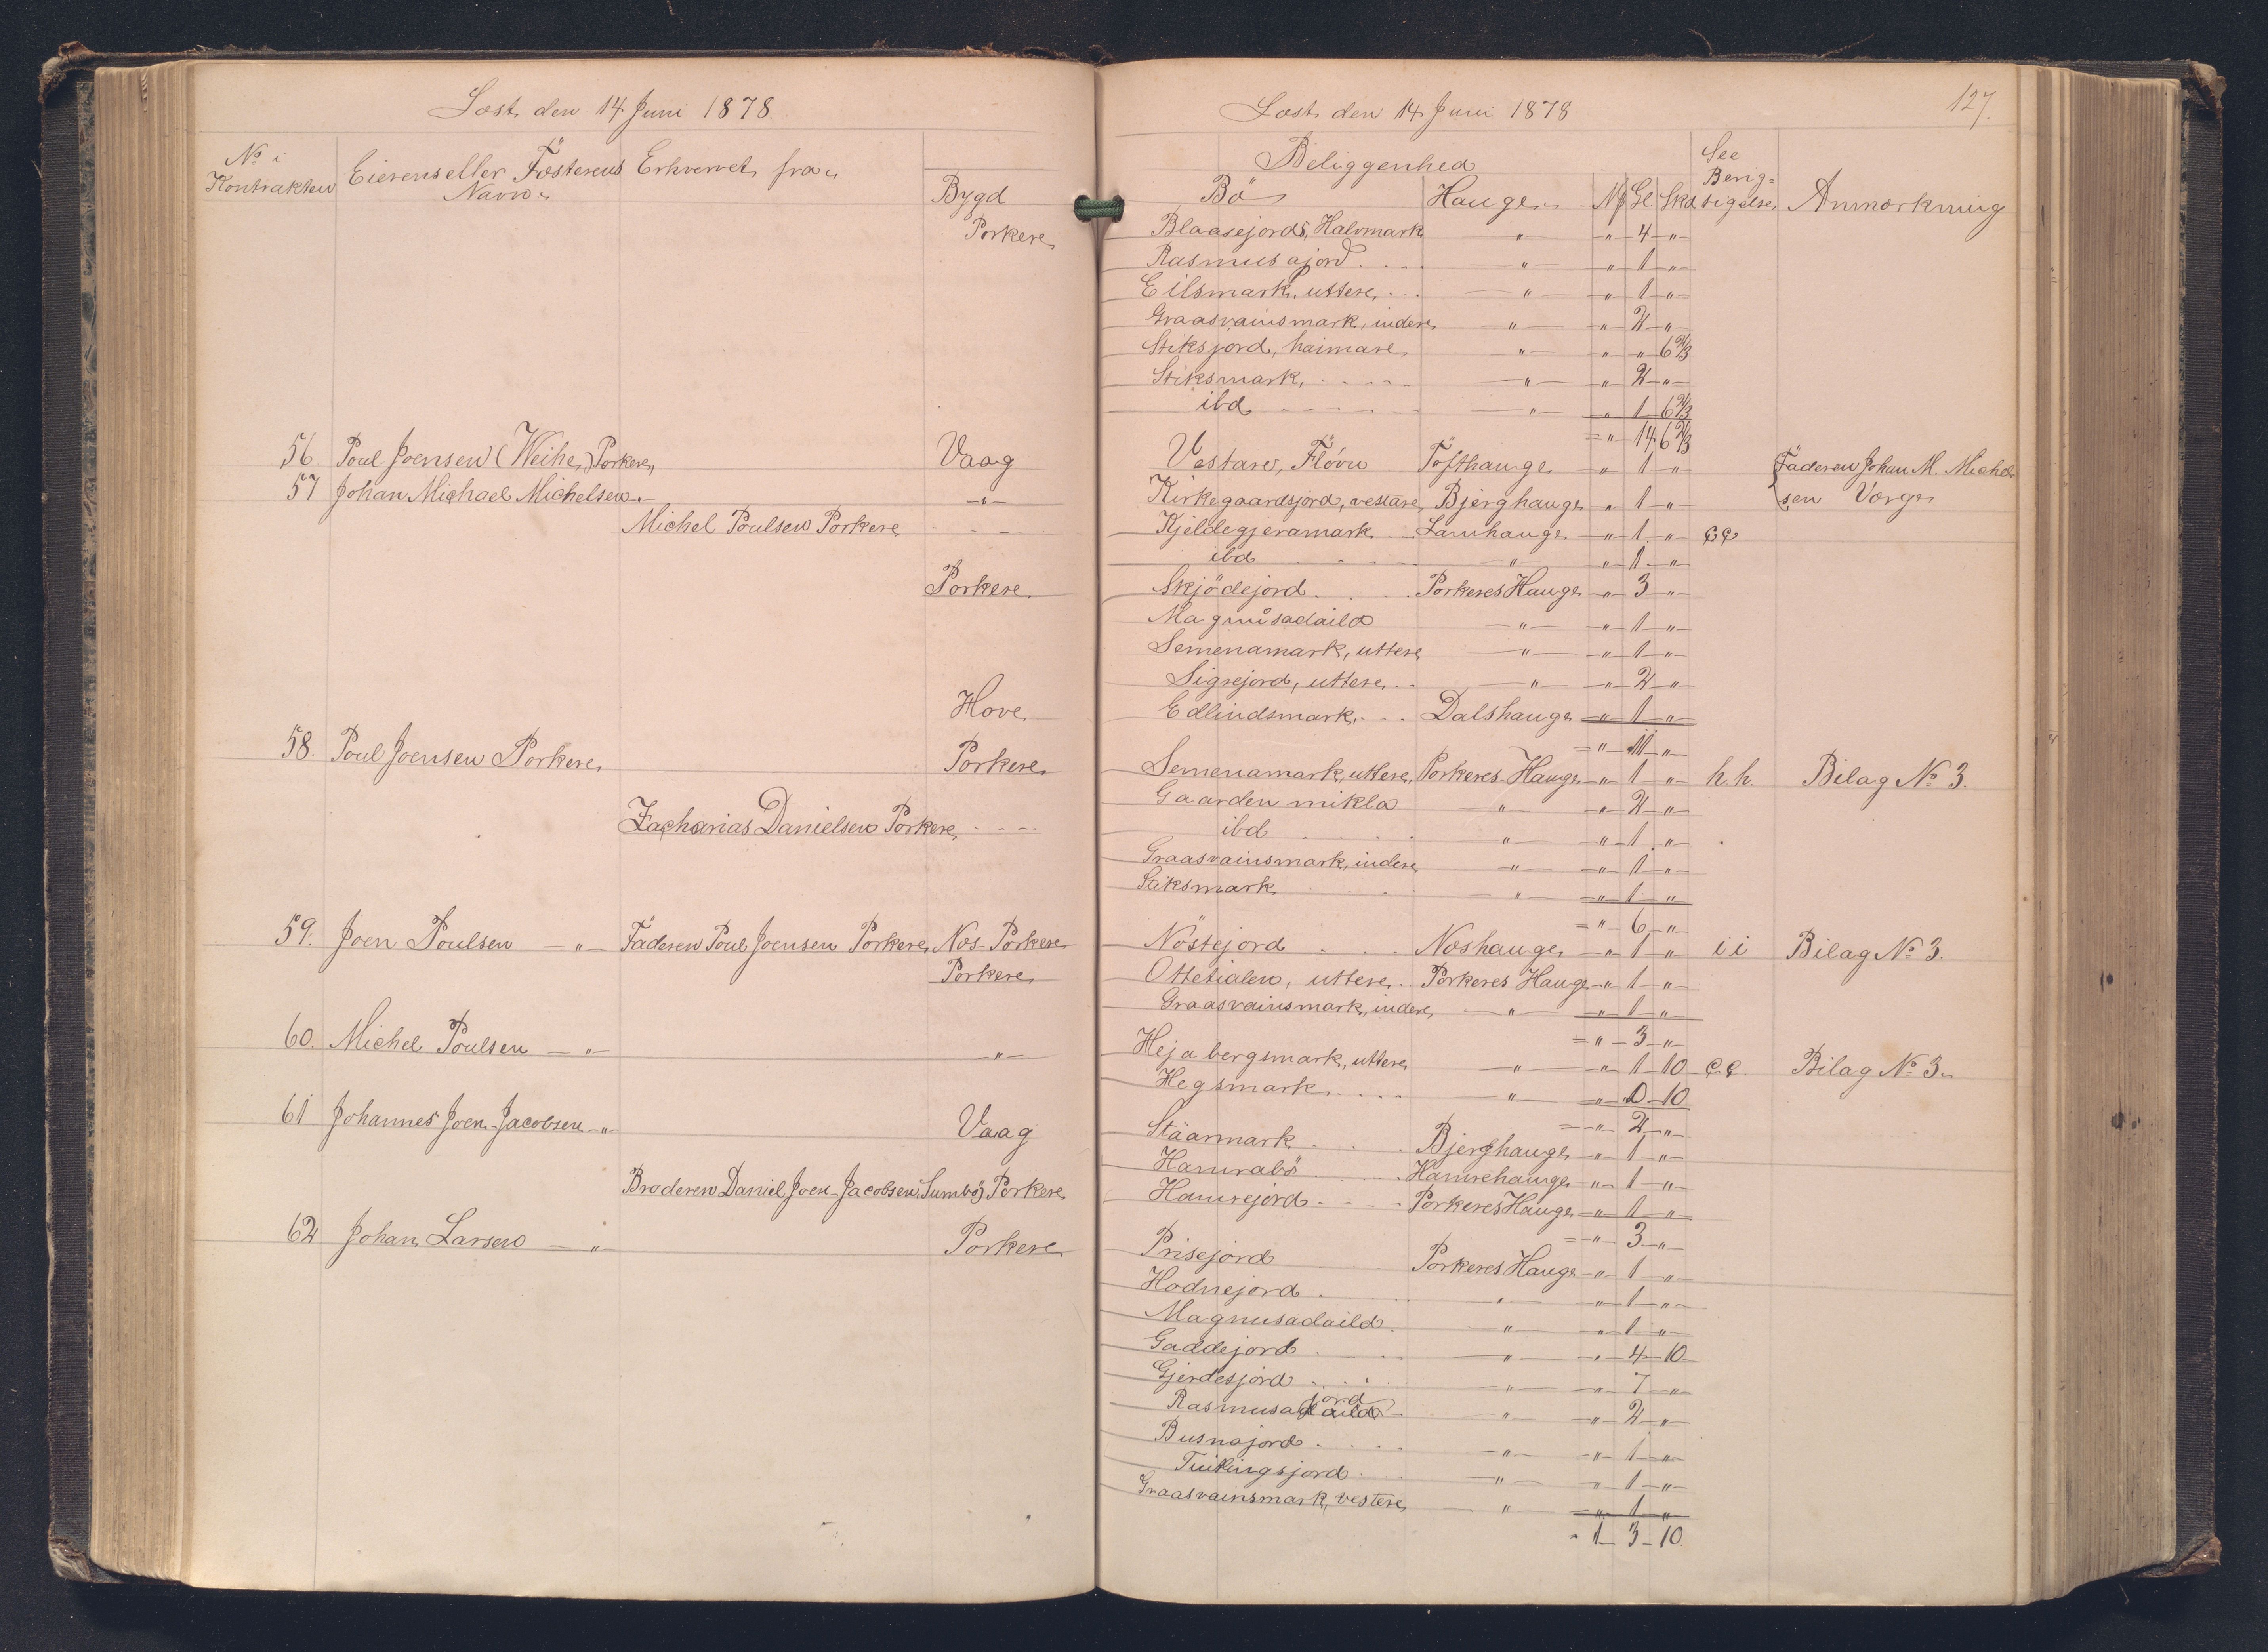 Læst den 14 Juni 1878.
No i Kontrakten
Eierens eller Fæsterens Navn
Erhvervet fra
Bygd
Porkere
56 Poul Joensen (Weihe) Porkere, Vaag
57 Johan Michael Michelsen " — " —
Michel Poulsen Porkere
Porkere
Hove
58. Poul Joensen Porkere Porkere
Zacharias Danielsen Porkere
59. Joen Poulsen — " — Faderen Poul Joensen Porkere Nes-Porkere
Porkere
60. Michel Poulsen — " — — " —
61 Johannes Joen-Jacobsen — " — Vaag
Broderen Daniel Joen-Jacobsen, Sumbö Porkere
62 Johan Larsen — " — Porkere
Læst den 14 Juni 1878
127.
Beliggenhed
See Berig=
Bö Hauge M Gl Sk tigelse Anmærkning
Blaasejords, Halvmark " " 4 "
Rasmusajord " " 1 "
Eilsmark, uttere " " 1 "
Graasvainsmark, indere " " 2 "
Stiksjord, haimare " " " 6 2/3
Stiksmark, " " 2 "
ibd " " 1 6 2/3
= " 14 6 2/3
Vestare, Flövu Tofthauge " 1 " Faderen Johan M. Michel
Kirkegaardsjord, vestare, Bjerghauge " 1 " sen Værge
Kjeldegjeramark Lamhauge " 1 " ee
ibd " " 1 "
Skjödejord Porkeres Hauge " 3 "
Magnusadaild " " 1 "
Semenamark, uttere " " 1 "
Sigsejord, uttere " " 2 "
Edlindsmark, Dalshauge " 1 "
= " 11 "
Semenamark, uttere, Porkeres Hauge " 1 " h.h. Bilag No 3.
Gaarden mikla " " 2 "
ibd " " 1 "
Graasvainsmark, indere " " 1 "
Stiksmark " " 1 "
= " 6 "
Nöstejord Neshauge " 1 " i i Bilag No 3.
Ottetialen, uttere Porkeres Hauge " 1 "
Graasvainsmark, indere " " 1 "
= " 3 "
Hejabergsmark, uttere " " 1 10 e.e. Bilag No 3.
Hegsmark " " 0 10
= " 2 "
Stäarmark Bjerghauge " 1 "
Hamrabö Hamrehauge " 1 "
Hamrejord Porkeres Hauge " 1 "
= " 3 "
Prisejord Porkeres Hauge " 1 "
Hodnejord " " 1 "
Magnusadaild " " 1 "
Gaddejord " " 4 10
Gjerdesjord " " 7 "
jord
Rasmusadaild " " 2 "
Busnajord " " 1 "
Tuikingsjord " " 1 "
Graasvainsmark, vestere " " 1 "
1 3 10